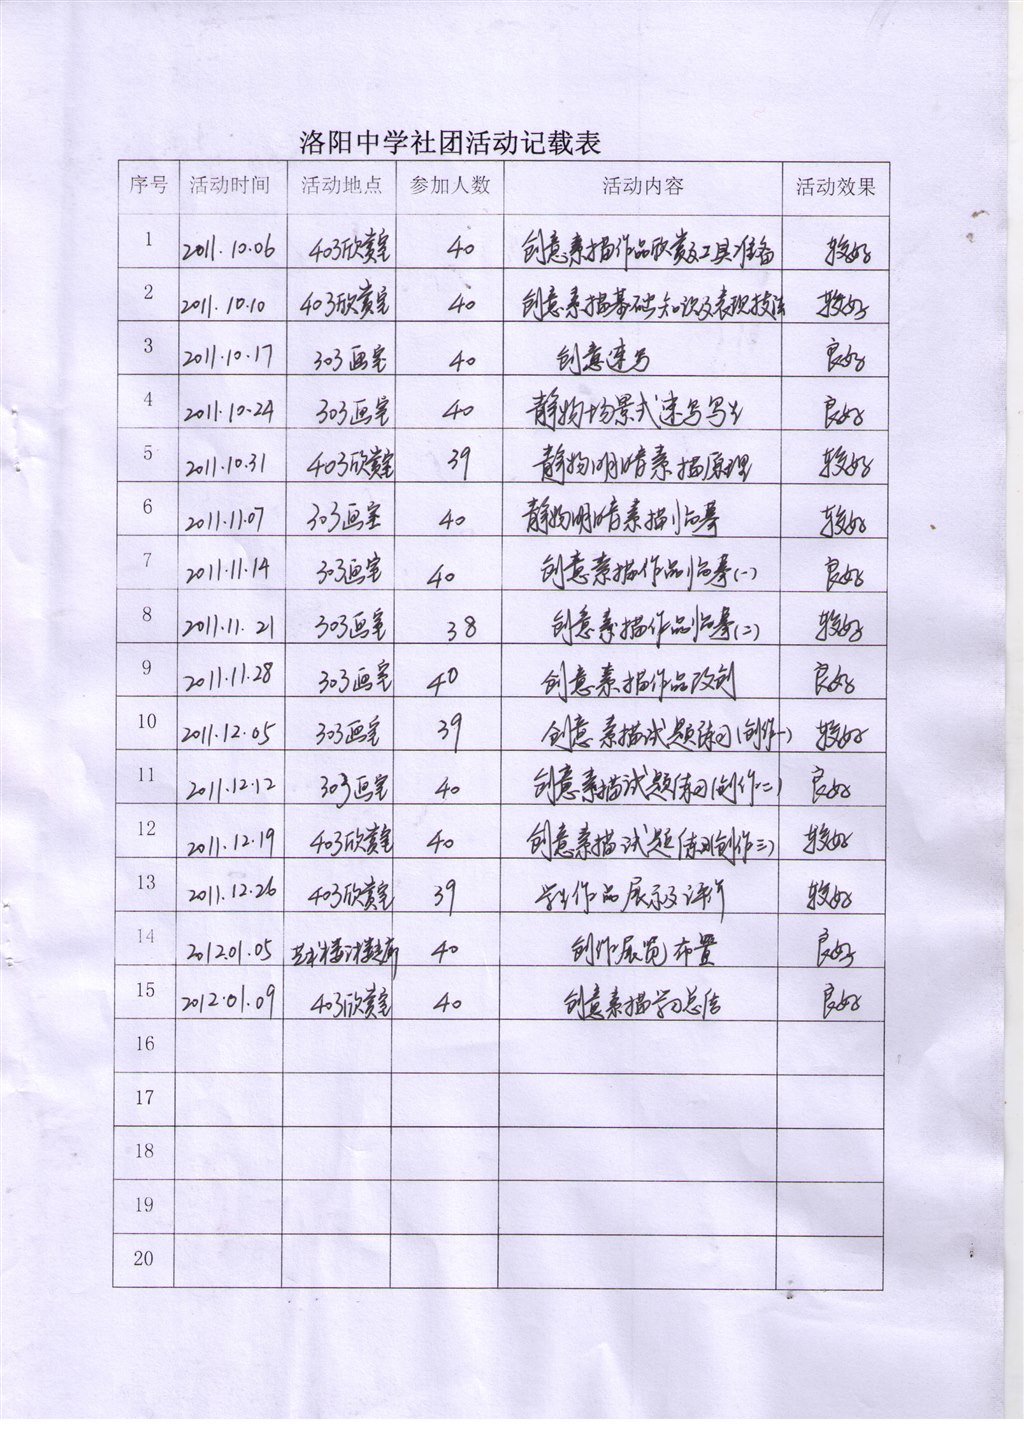 洛阳中学社团活动记载表
序号 活动时间 活动地点 参加人数 活动内容 活动效果
1 2011.10.06 403欣赏室 40 创意素描作品欣赏及工具准备 较好
2 2011.10.10 403欣赏室 40 创意素描基础知识及表现技法 较好
3 2011.10.17 303画室 40 创意速写 良好
4 2011.10.24 303画室 40 静物场景式速写写生 良好
5 2011.10.31 403欣赏室 39 静物明暗素描原理 较好
6 2011.11.07 303画室 40 静物明暗素描临摹 较好
7 2011.11.14 303画室 40 创意素描作品临摹(一) 良好
8 2011.11.21 303画室 38 创意素描作品临摹(二) 较好
9 2011.11.28 303画室 40 创意素描作品改创 良好
10 2011.12.05 303画室 39 创意素描试题练习(创作一) 较好
11 2011.12.12 303画室 40 创意素描试题练习(创作二) 良好
12 2011.12.19 403欣赏室 40 创意素描试题练习(创作三) 较好
13 2011.12.26 403欣赏室 39 学生作品展示及评价 较好
14 2012.01.05 40 创作展览布置 良好
15 2012.01.09 403欣赏室 40 创意素描学习总结 良好
16
17
18
19
20